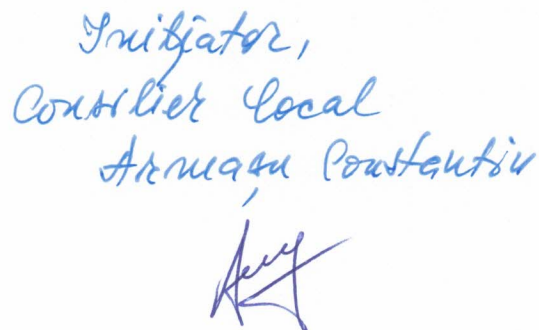 Inițiator,
Consilier local
Armașu Constantin